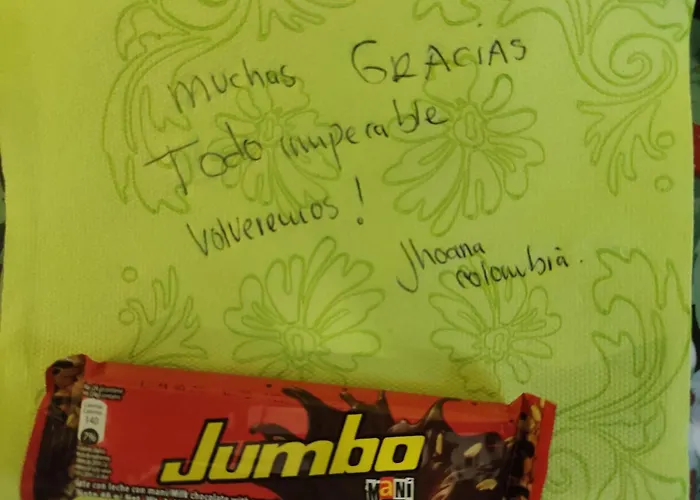 Muchas GRACIAS
Todo inmperable
Volveremos!
Jhoana
colombia.
140
7%
Jumbo
Maní
late con leche con maní/Milk chocolate with